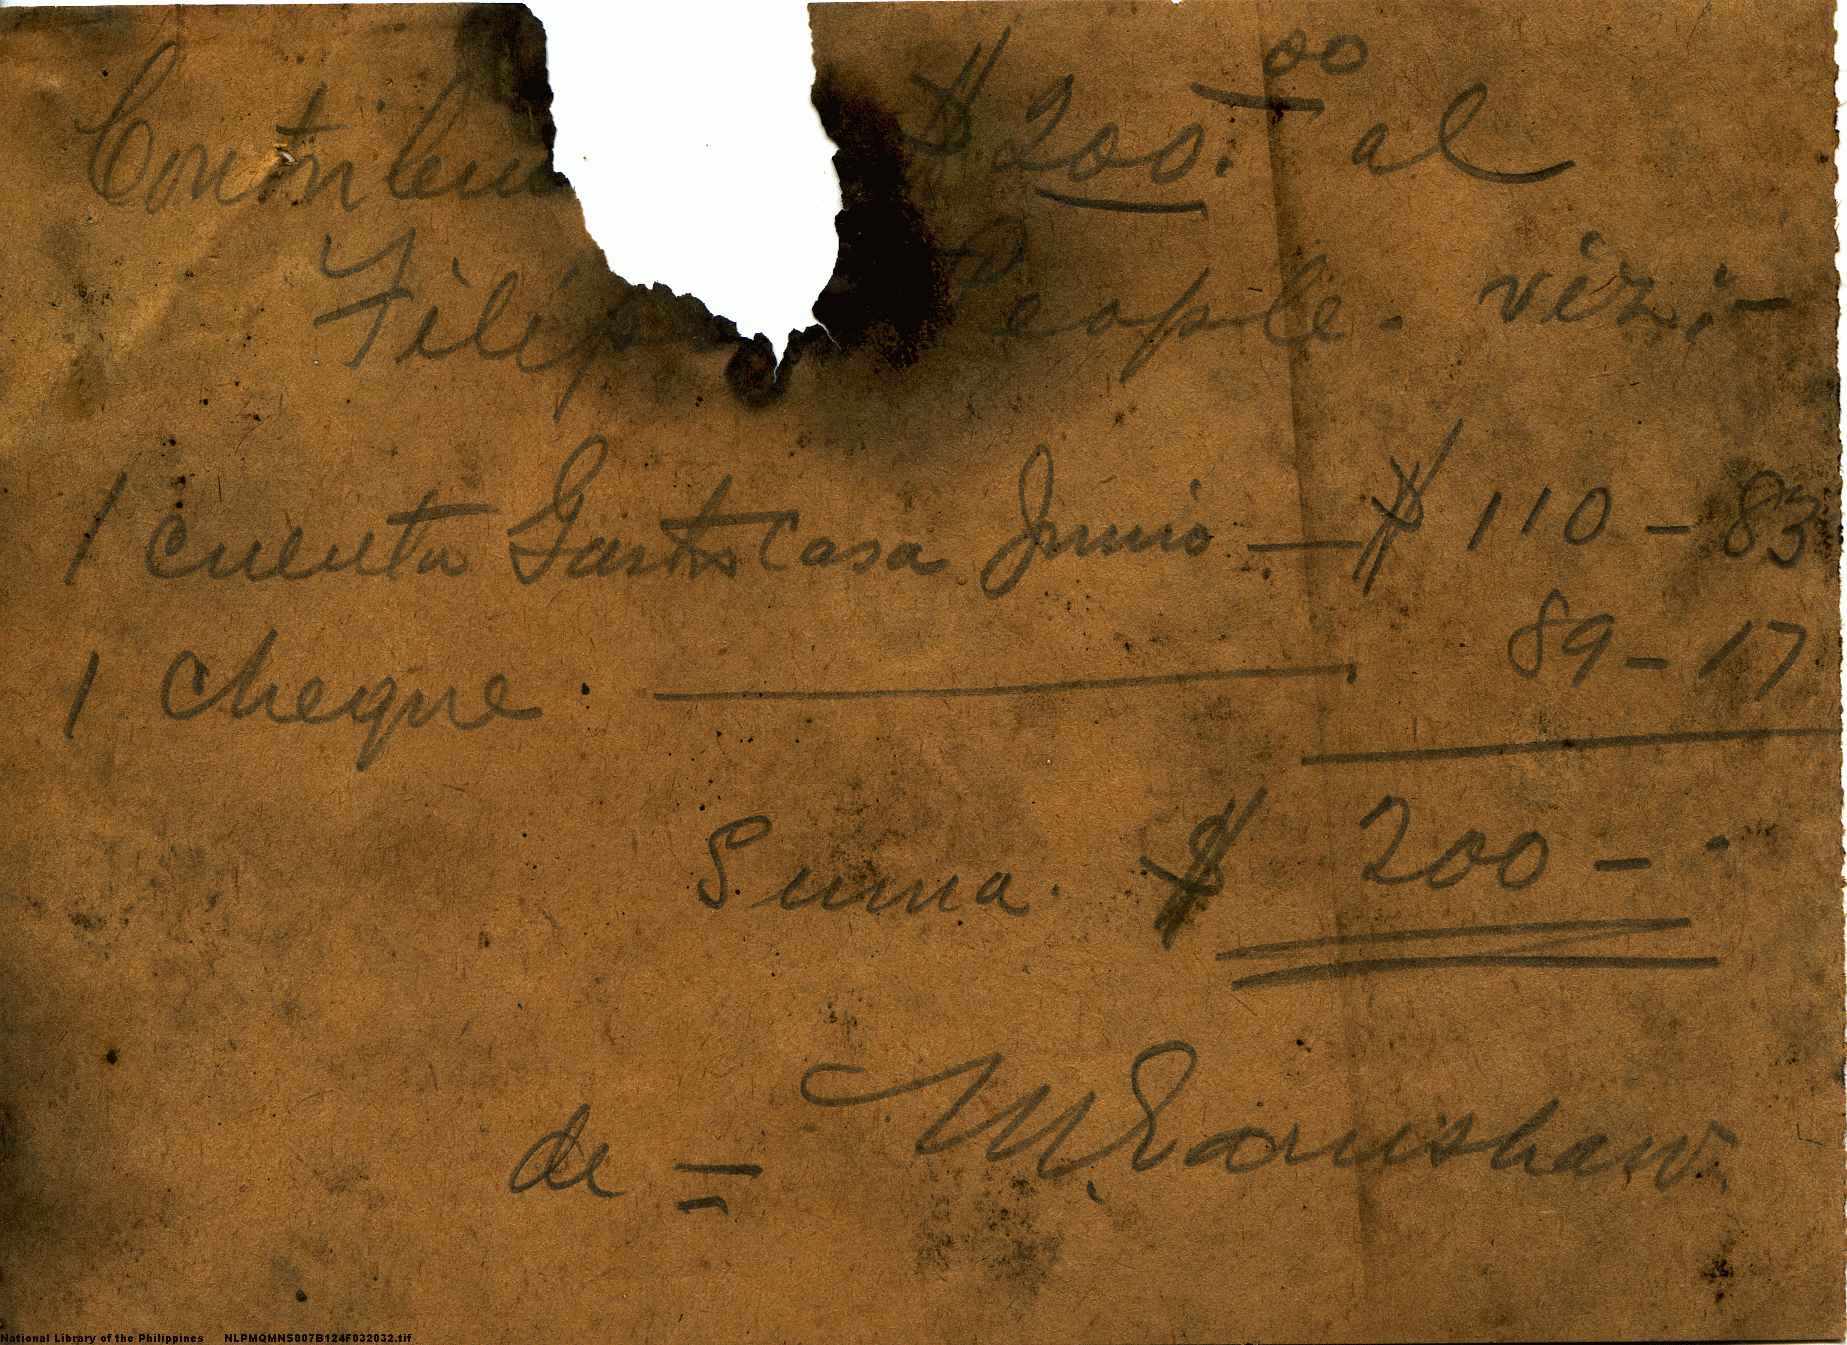 Contribu $200.00 al
Filip People. viz:-
1 cuenta Gastos Casa Junio — $ 110 - 83
1 cheque. — 89 - 17
Suma. $ 200 -
de = M. Earnshaw.
National Library of the Philippines NLPMQMNS007B124F032032.tif